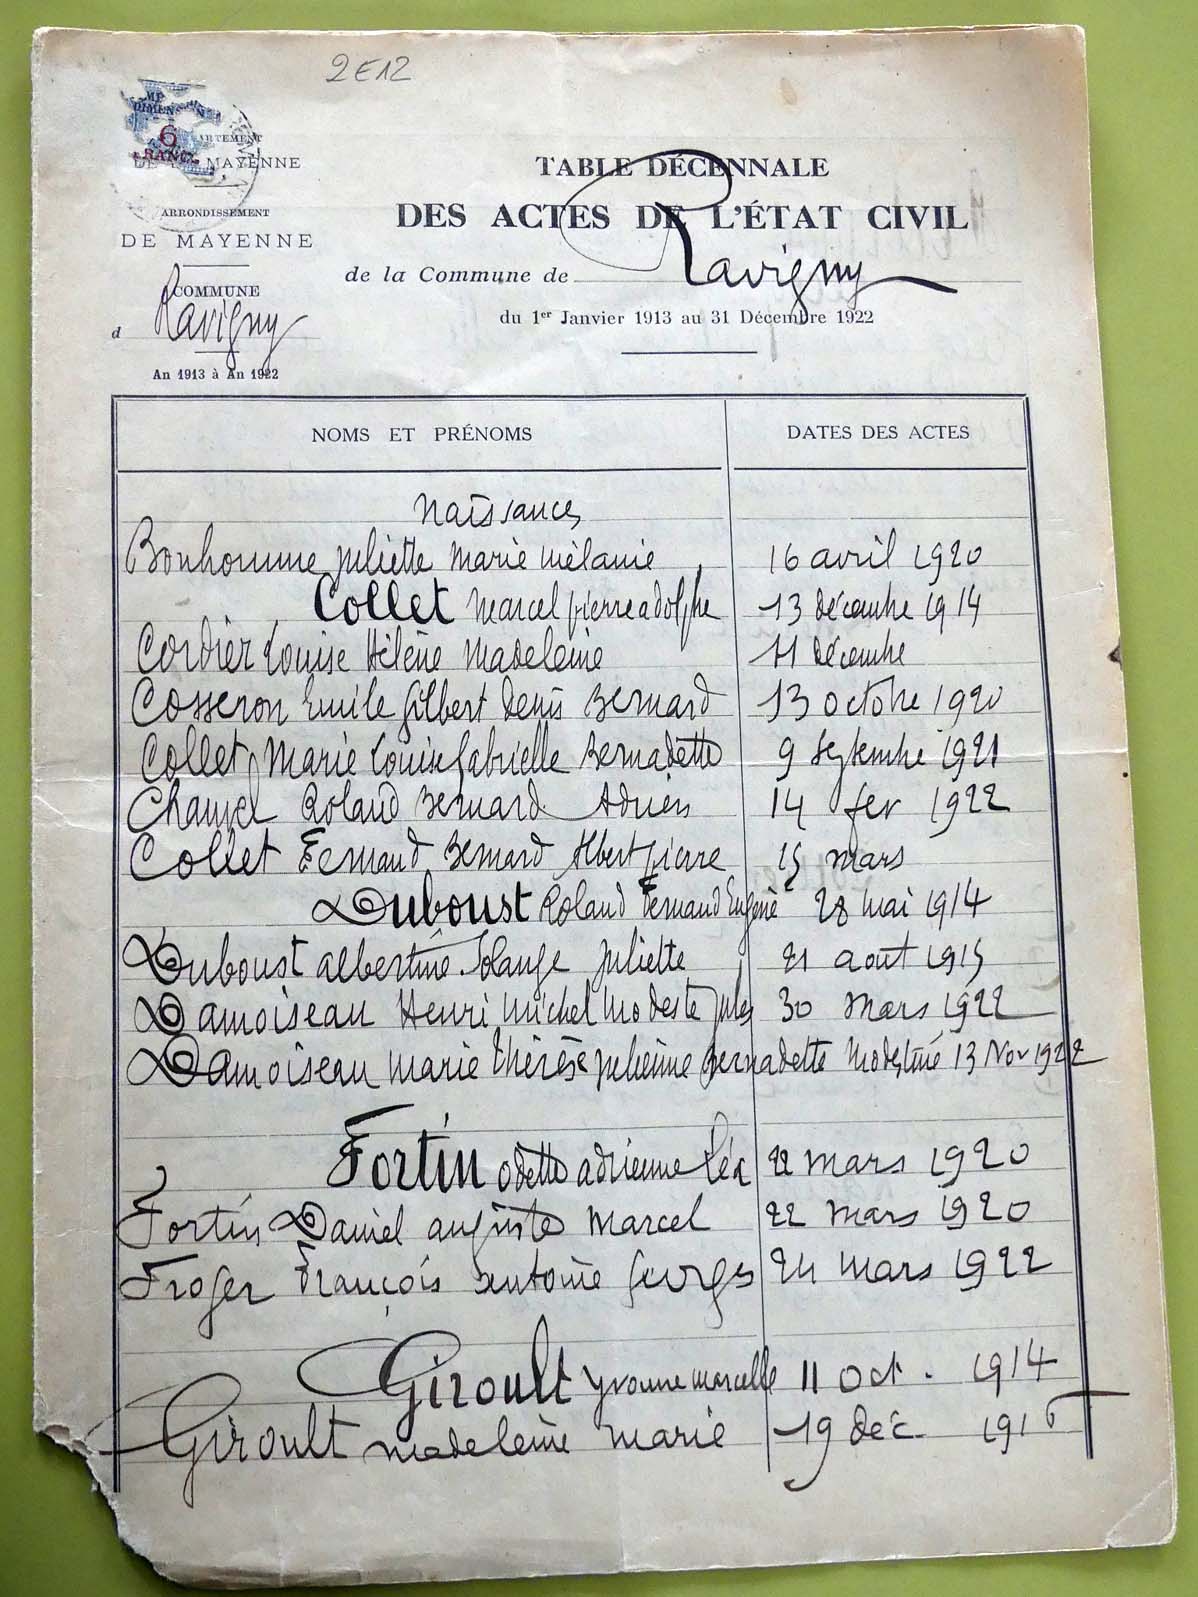 2E12
DIMENSION
6
FRANCS
DÉPARTEMENT
DE MAYENNE
ARRONDISSEMENT
DE MAYENNE
COMMUNE
d Ravigny
An 1913 à An 1922
TABLE DÉCENNALE
DES ACTES DE L'ÉTAT CIVIL
de la Commune de Ravigny
du 1er Janvier 1913 au 31 Décembre 1922
NOMS ET PRÉNOMS DATES DES ACTES
Naissances
Bonhomme Juliette Marie Mélanie 16 avril 1920
Collet Marcel pierre adolphe 13 décembre 1914
Cordier Louise Hélène Madeleine 11 décembre
Cosseron Emile Gilbert Denis Bernard 13 octobre 1920
Collet Marie Louise Gabrielle Bernadette 9 Septembre 1921
Chauvel Roland Bernard Adrien 14 fev 1922
Collet Fernand Bernard Albert pierre 15 mars
Duboust Roland Fernand Eugène 28 mai 1914
Duboust albertine Solange Juliette 21 aout 1915
Damoiseau Henri Michel Modeste Jules 30 Mars 1922
Damoiseau Marie Thérèse Julienne Bernadette Modestine 13 Nov 1922
Fortin odette adrienne Léa 22 mars 1920
Fortin Daniel auguste Marcel 22 mars 1920
Froger François Antoine Georges 24 mars 1922
Giroult Yvonne marcelle 11 Oct. 1914
Giroult madeleine Marie 19 déc. 1916